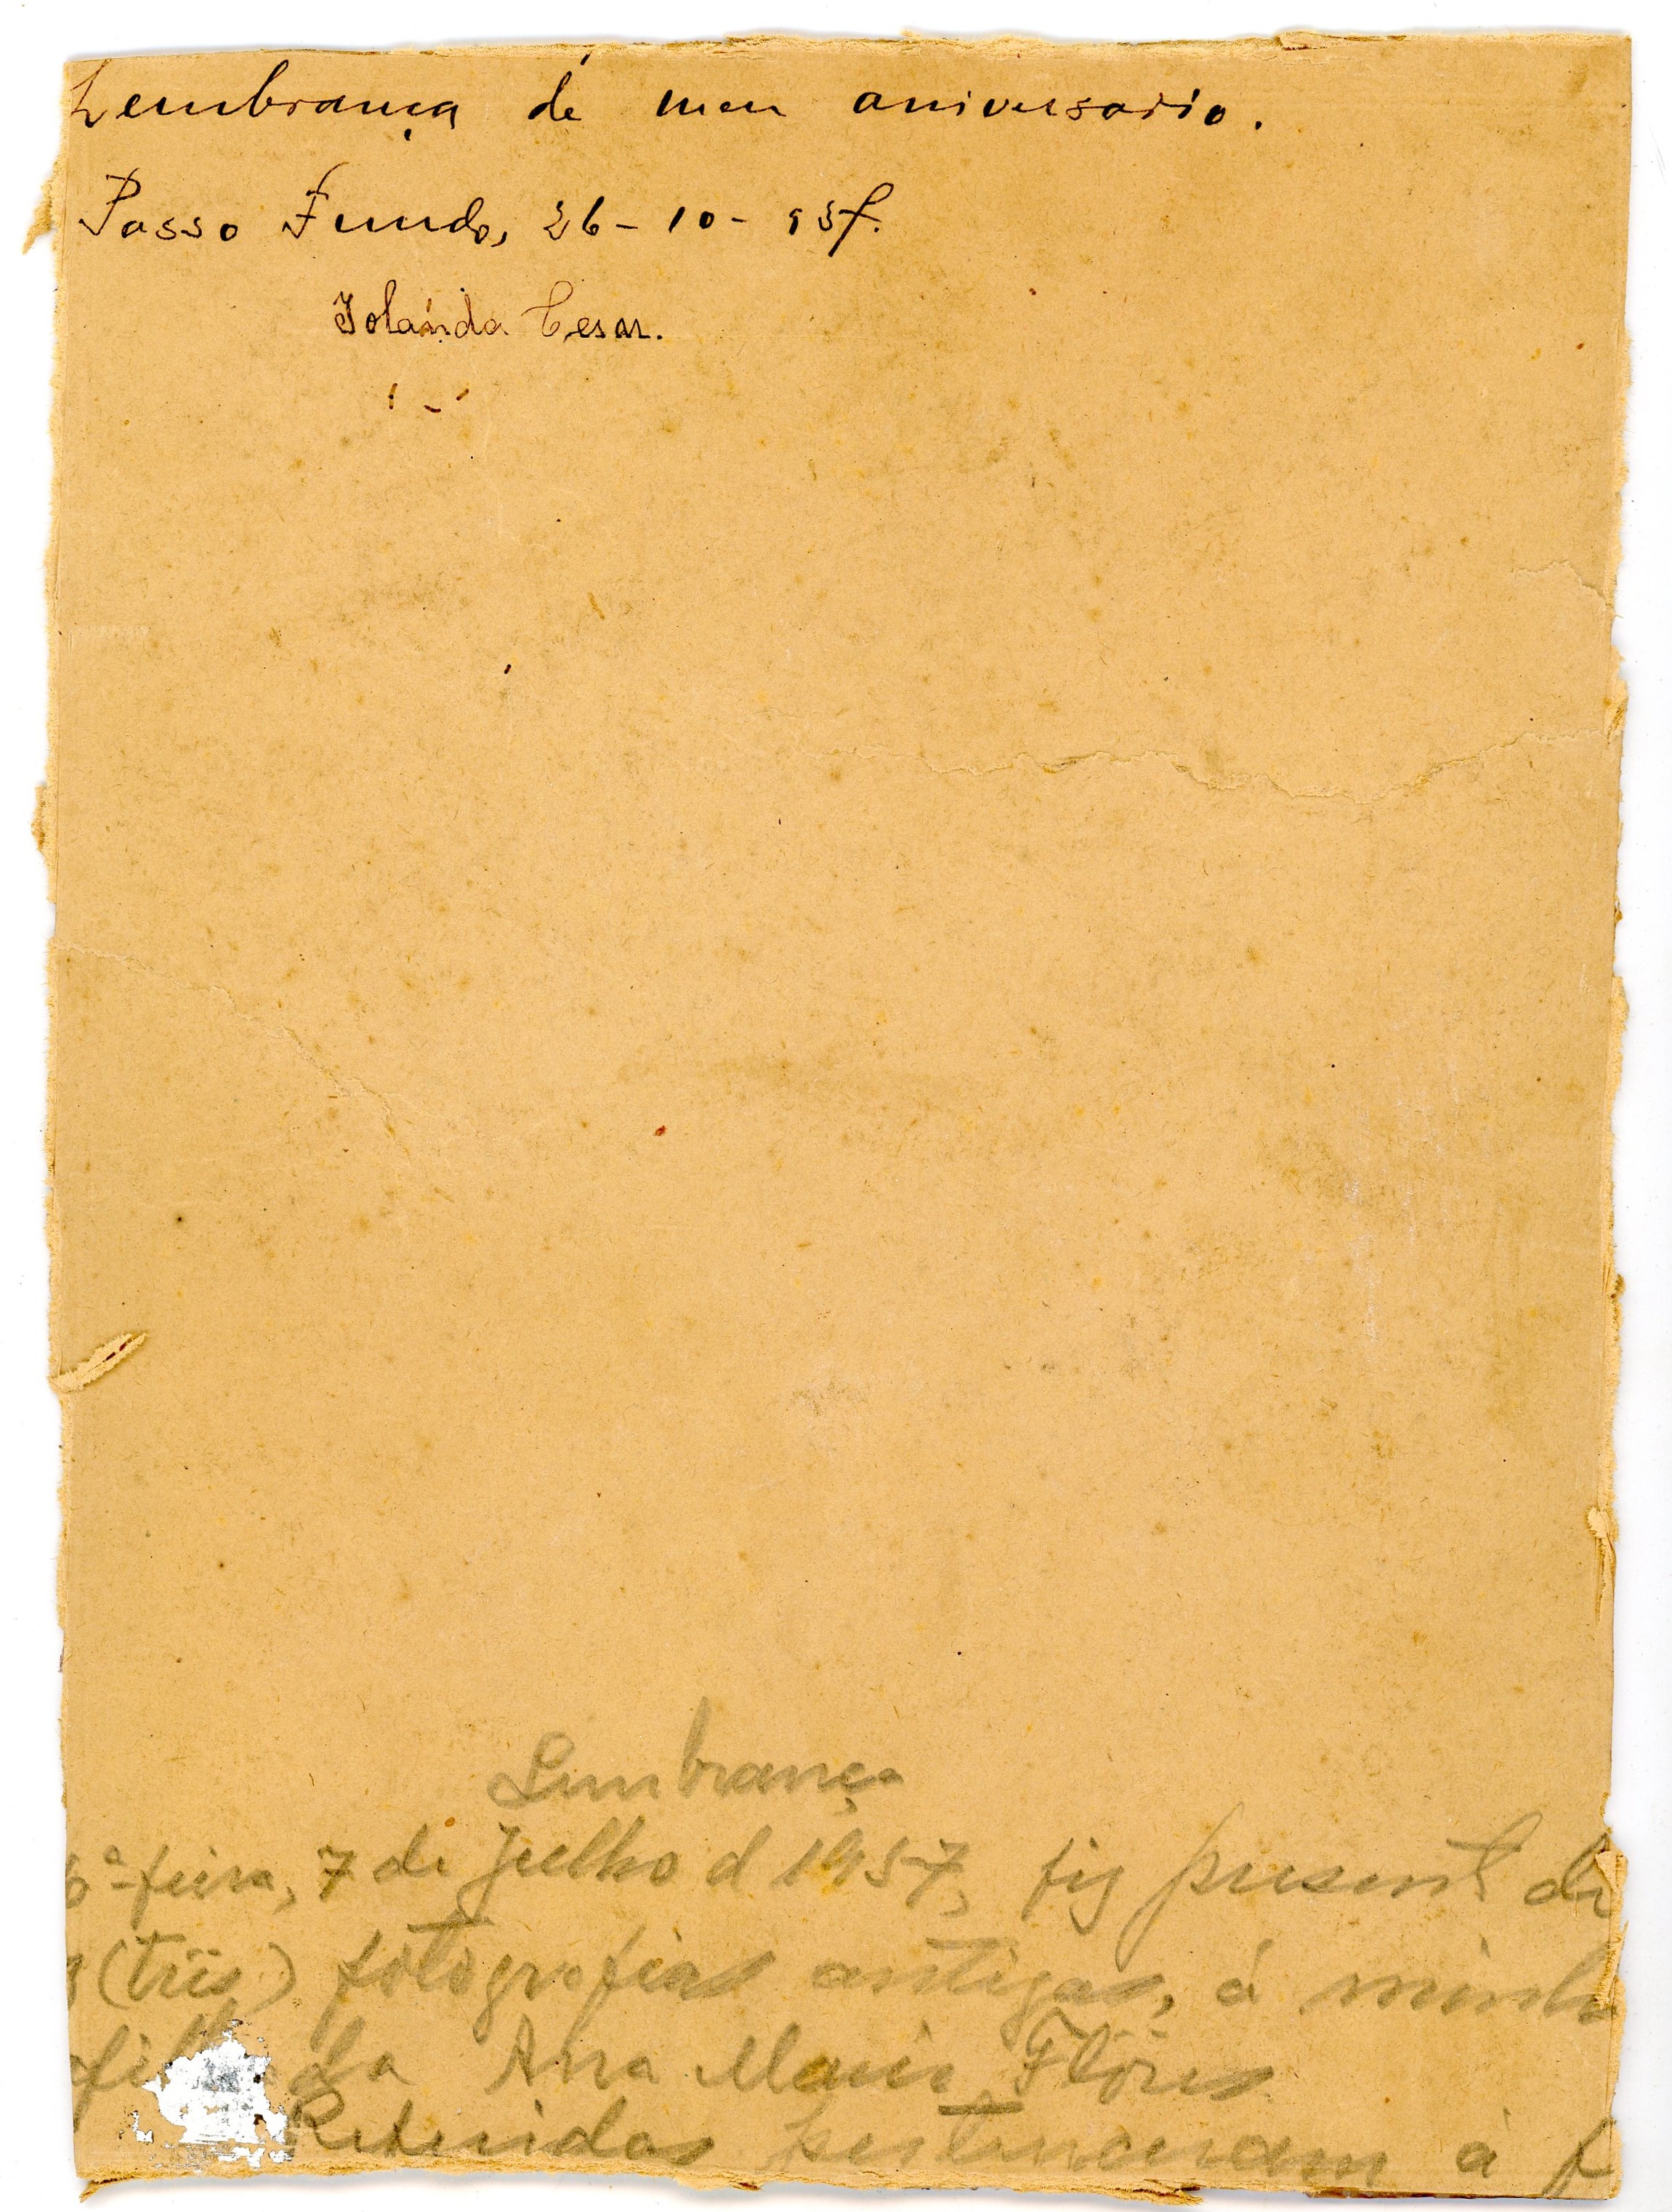 Lembrança de meu aniversario.
Passo Fundo, 26-10-
Iolánda Cesar.
Lembrança
6ª-feira, 7 de Julho d 1957, fiz present de
3 (três) fotografias antigas, á minha
afilhada Ana Maria Flôres
Referidas pertenceram à f